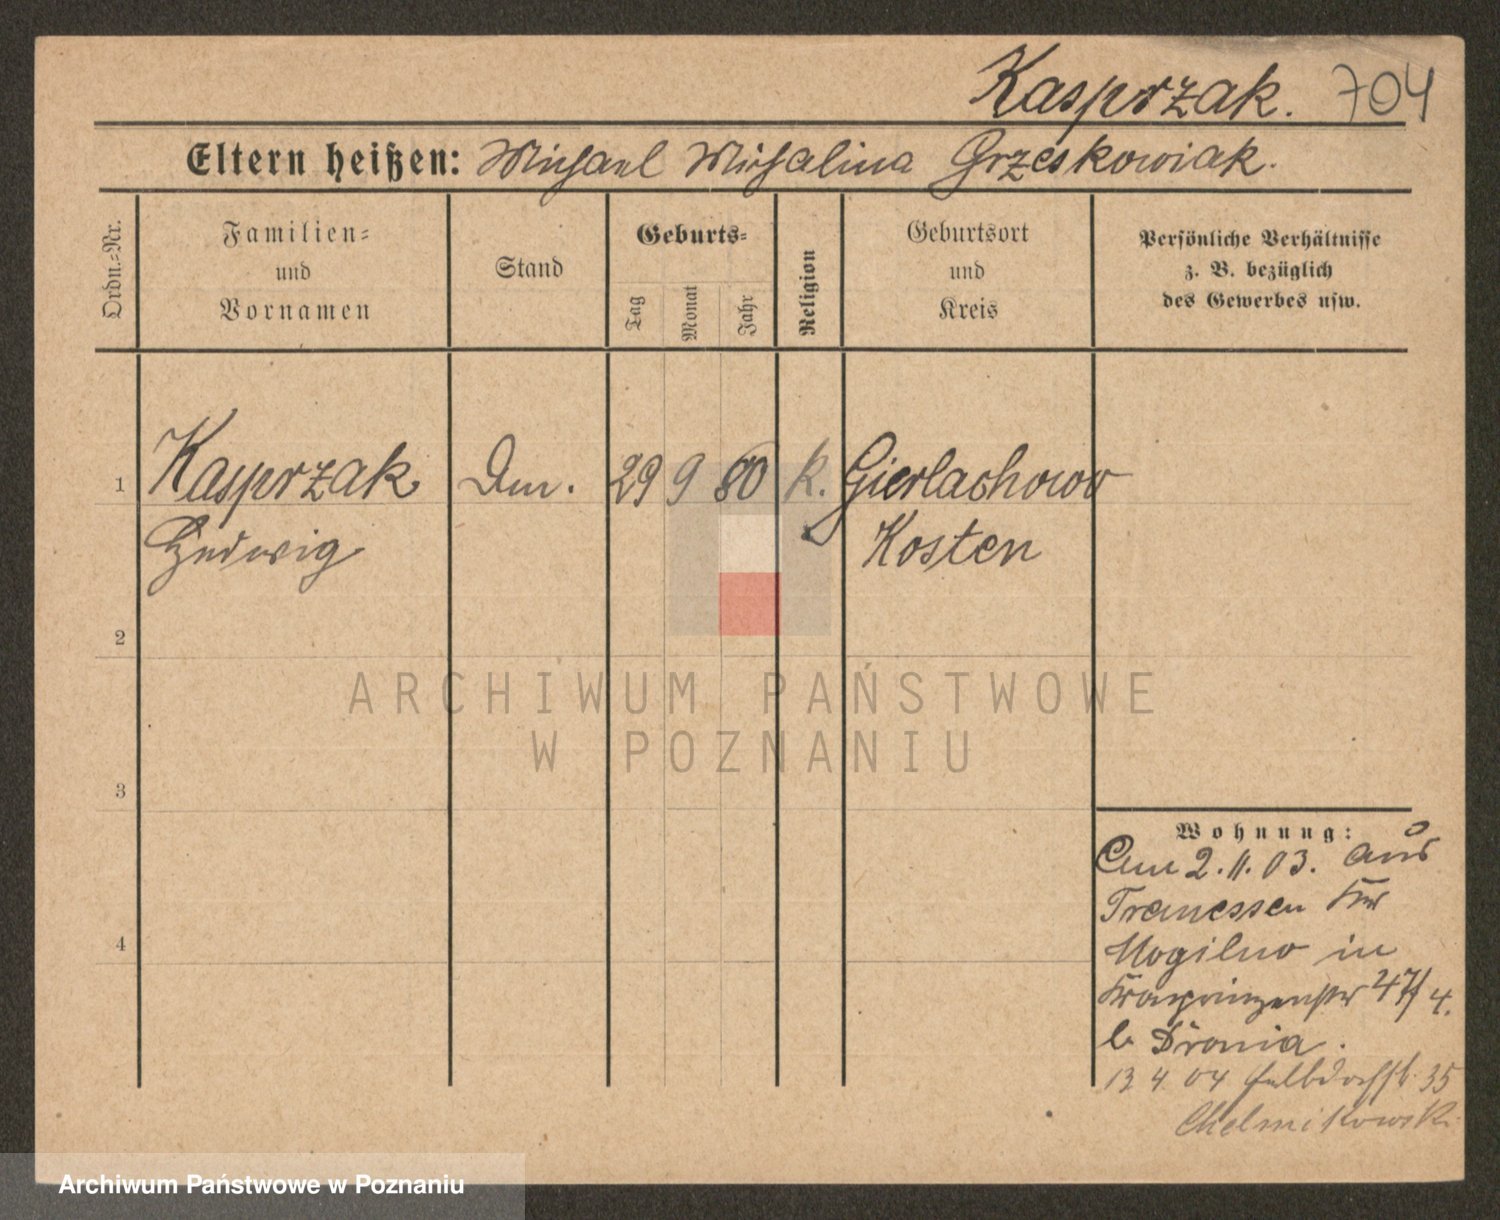 Kasprzak. 704
Eltern heißen: Michael Michalina Grzeskowiak.
Ordn.-Nr.
Familien-
und
Vornamen
Stand
Geburts-
Tag
Monat
Jahr
Religion
Geburtsort
und
Kreis
Persönliche Verhältnisse
z. B. bezüglich
des Gewerbes usw.
1 Kasprzak 29 9 80 k. Gierlachowo
Hedwig Kosten
2
3
4
ARCHIWUM PAŃSTWOWE
W POZNANIU
Wohnung:
2.11.03. aus
Tremessen Kr
Mogilno in
Kronprinzenstr 47/4.
b
13 4 04 35
Chelmikowski
Archiwum Państwowe w Poznaniu